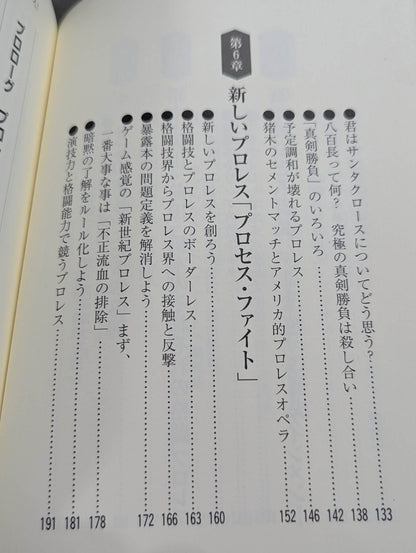 ●君はサンタクロースについてどう思う?……133
●八百長って何? 究極の真剣勝負は殺し合い……138
●「真剣勝負」のいろいろ……142
●予定調和が壊れるプロレス……146
●猪木のセメントマッチとアメリカ的プロレスオペラ……152
第6章
新しいプロレス「プロセス・ファイト」
●新しいプロレスを創ろう……160
●格闘技とプロレスのボーダーレス……163
●格闘技界からプロレス界への接触と反撃……166
●暴露本の問題定義を解消しよう……172
●ゲーム感覚の「新世紀プロレス」まず、
一番大事な事は「不正流血の排除」……178
●暗黙の了解をルール化しよう……181
●演技力と格闘能力で競うプロレス……191
プロローグ